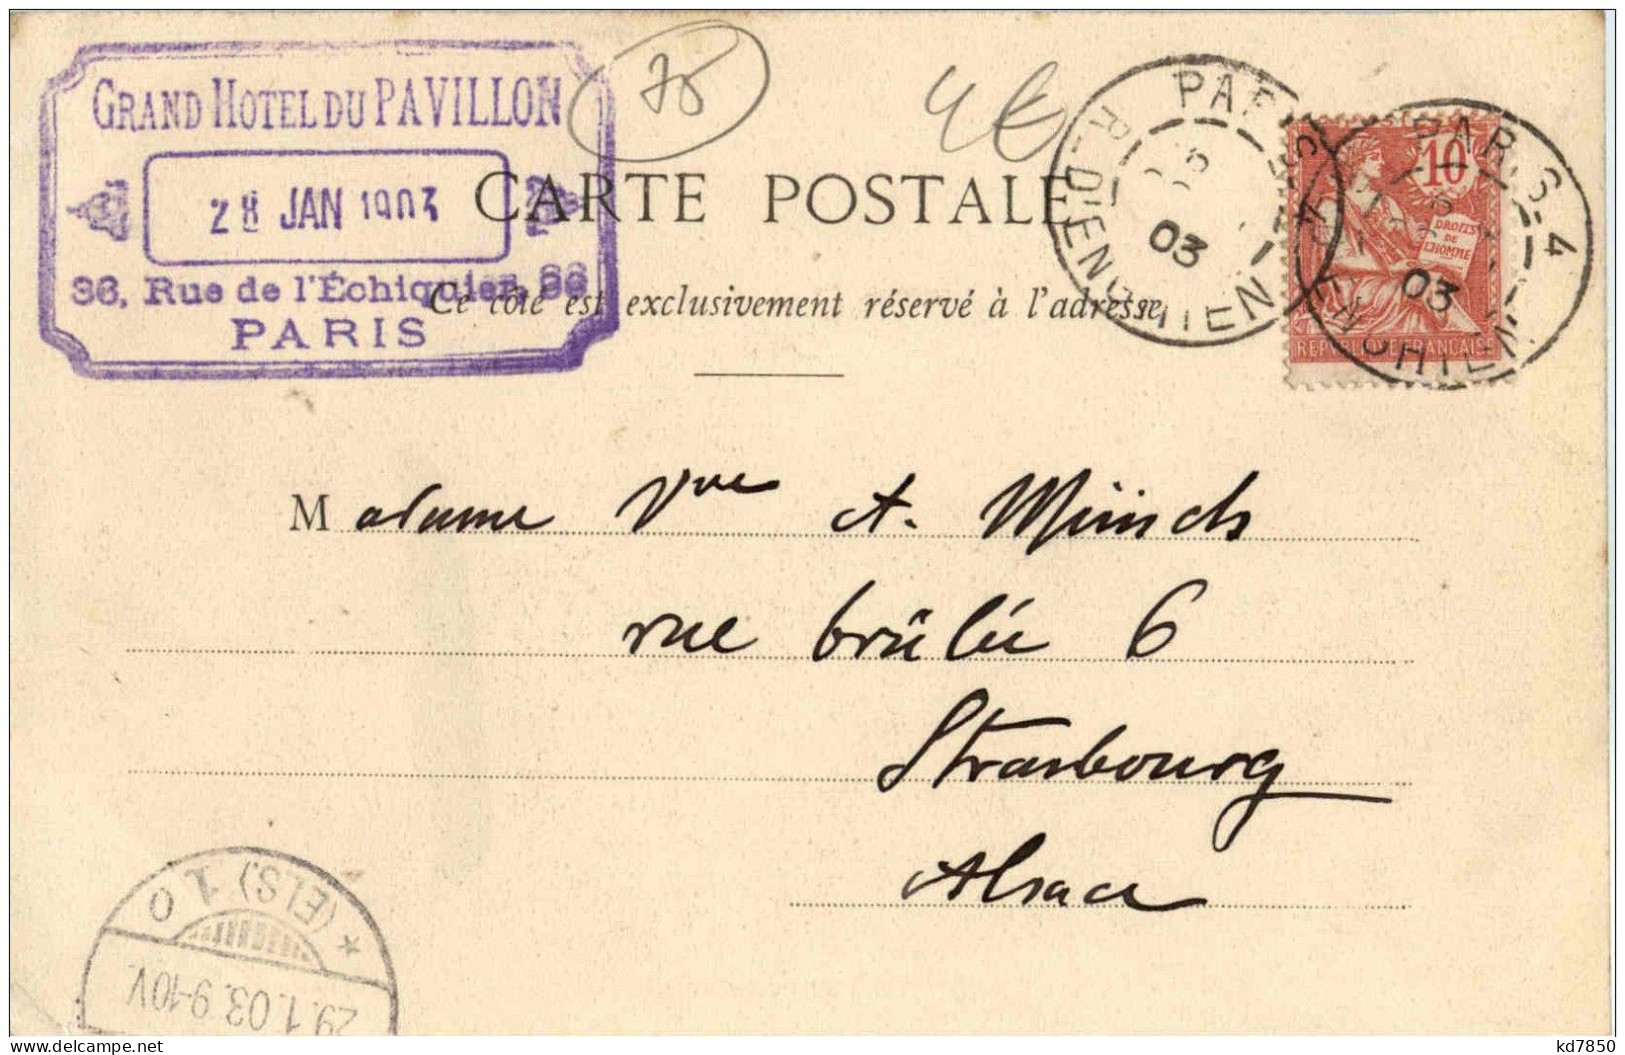 GRAND HOTEL DU PAVILLON
28 JAN 1903
36, Rue de l'Échiquier, 36
PARIS
75
4€
CARTE POSTALE
Ce côté est exclusivement réservé à l'adresse
PARIS
R. D'ENGHIEN
03
PARIS-4
R. D'ENGHIEN
03
10
DROITS
DE
L'HOMME
REPUBLIQUE FRANÇAISE
Madame Vve A. Münch
rue brûlée 6
Strasbourg
Alsace
(ELS.) 1 0
29.1.03.9-10V.
kd7850